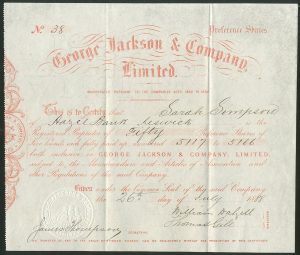 No. 38 Preference Shares
George Jackson & Company,
Limited.
INCORPORATED PURSUANT TO THE COMPANIES ACTS 1862 TO
This is to Certify that Sarah Simpson
of Hazel Bank Keswick is the
Registered Proprietor of Fifty Preference Shares of
Five Pounds each fully paid up, numbered 5117 to 5166
both inclusive in GEORGE JACKSON & COMPANY, LIMITED
subject to the Memorandum and Articles of Association and
other Regulations of the said Company.
Given under the Common Seal of the said Company
the 26th day of July 18
William
James Thompson SECRETARY. Thomas Gill